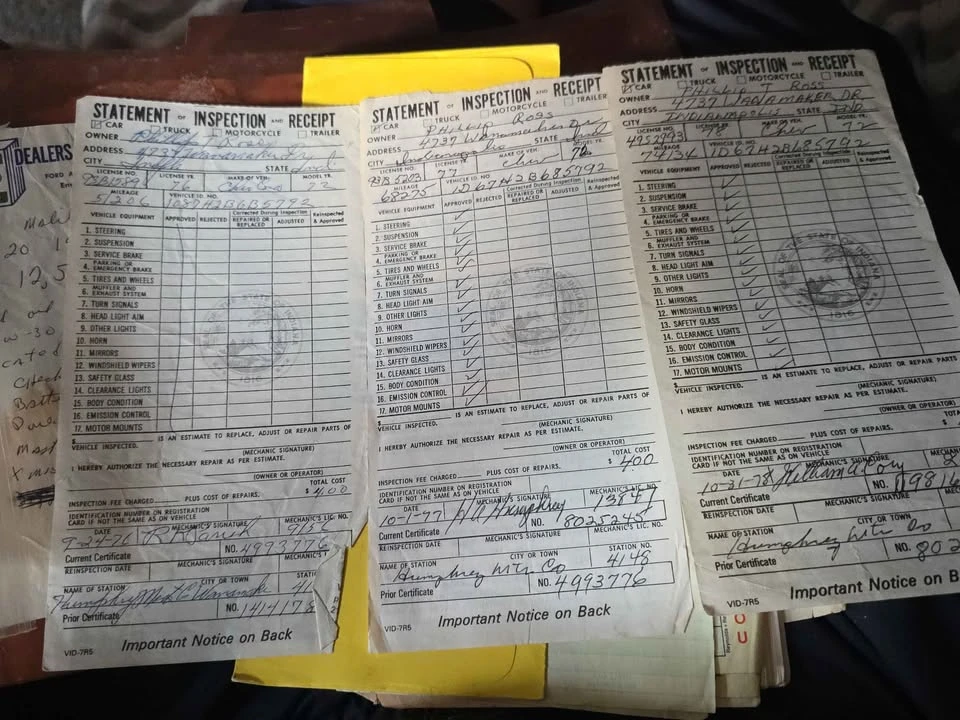 DEALERS
FORD A
20
12,5
w-30
STATEMENT OF INSPECTION AND RECEIPT
CAR TRUCK MOTORCYCLE TRAILER
OWNER
ADDRESS
CITY STATE
LICENSE NO. LICENSE YR. MAKE OF VEH. MODEL YR.
76 72
MILEAGE VEHICLE ID. NO.
51206
VEHICLE EQUIPMENT APPROVED REJECTED Corrected During Inspection REPAIRED OR REPLACED ADJUSTED Reinspected & Approved
1. STEERING
2. SUSPENSION
3. SERVICE BRAKE
4. PARKING OR EMERGENCY BRAKE
5. TIRES AND WHEELS
6. MUFFLER AND EXHAUST SYSTEM
7. TURN SIGNALS
8. HEAD LIGHT AIM
9. OTHER LIGHTS
10. HORN
11. MIRRORS
12. WINDSHIELD WIPERS
13. SAFETY GLASS
14. CLEARANCE LIGHTS
15. BODY CONDITION
16. EMISSION CONTROL
17. MOTOR MOUNTS
$ IS AN ESTIMATE TO REPLACE, ADJUST OR REPAIR PARTS OF
VEHICLE INSPECTED. (MECHANIC SIGNATURE)
I HEREBY AUTHORIZE THE NECESSARY REPAIR AS PER ESTIMATE.
(OWNER OR OPERATOR)
INSPECTION FEE CHARGED PLUS COST OF REPAIRS. TOTAL COST
$ 4.00
IDENTIFICATION NUMBER ON REGISTRATION
CARD IF NOT THE SAME AS ON VEHICLE
DATE MECHANIC'S SIGNATURE MECHANIC'S LIC. NO.
9-24-76
Current Certificate NO. 4993776
REINSPECTION DATE MECHANIC'S SIGNATURE MECHANIC'S
NAME OF STATION CITY OR TOWN STATI
Humphrey 41
Prior Certificate NO.
VID-7R5 Important Notice on Back
STATEMENT OF INSPECTION AND RECEIPT
CAR TRUCK MOTORCYCLE TRAILER
OWNER Phillip Ross
ADDRESS 4737 Wanamaker Dr
CITY Indianapolis STATE Ind
LICENSE NO. LICENSE YR. MAKE OF VEH. MODEL YR.
77 Chev 72
MILEAGE VEHICLE ID. NO.
68275 1D67H2B685792
VEHICLE EQUIPMENT APPROVED REJECTED Corrected During Inspection REPAIRED OR REPLACED ADJUSTED Reinspected & Approved
1. STEERING
2. SUSPENSION
3. SERVICE BRAKE
4. PARKING OR EMERGENCY BRAKE
5. TIRES AND WHEELS
6. MUFFLER AND EXHAUST SYSTEM
7. TURN SIGNALS
8. HEAD LIGHT AIM
9. OTHER LIGHTS
10. HORN
11. MIRRORS
12. WINDSHIELD WIPERS
13. SAFETY GLASS
14. CLEARANCE LIGHTS
15. BODY CONDITION
16. EMISSION CONTROL
17. MOTOR MOUNTS
$ IS AN ESTIMATE TO REPLACE, ADJUST OR REPAIR PARTS OF
VEHICLE INSPECTED. (MECHANIC SIGNATURE)
I HEREBY AUTHORIZE THE NECESSARY REPAIR AS PER ESTIMATE.
(OWNER OR OPERATOR)
INSPECTION FEE CHARGED PLUS COST OF REPAIRS. TOTAL COST
$ 4.00
IDENTIFICATION NUMBER ON REGISTRATION
CARD IF NOT THE SAME AS ON VEHICLE
DATE MECHANIC'S SIGNATURE MECHANIC'S LIC. NO.
10-1-77 Humphrey 13847
Current Certificate NO. 8025245
REINSPECTION DATE MECHANIC'S SIGNATURE MECHANIC'S LIC. NO.
NAME OF STATION CITY OR TOWN STATION NO.
Humphrey Mtr Co 4148
Prior Certificate NO. 4993776
VID-7R5 Important Notice on Back
STATEMENT OF INSPECTION AND RECEIPT
CAR TRUCK MOTORCYCLE TRAILER
OWNER PHILLIP T ROSS
ADDRESS 4737 WANAMAKER DR
CITY INDIANAPOLIS STATE IND
LICENSE NO. LICENSE YR. MAKE OF VEH. MODEL YR.
Chev 72
MILEAGE VEHICLE ID. NO.
74134 1D67H2B685792
VEHICLE EQUIPMENT APPROVED REJECTED Corrected During Inspection REPAIRED OR REPLACED ADJUSTED Reinspected & Approved
1. STEERING
2. SUSPENSION
3. SERVICE BRAKE
4. PARKING OR EMERGENCY BRAKE
5. TIRES AND WHEELS
6. MUFFLER AND EXHAUST SYSTEM
7. TURN SIGNALS
8. HEAD LIGHT AIM
9. OTHER LIGHTS
10. HORN
11. MIRRORS
12. WINDSHIELD WIPERS
13. SAFETY GLASS
14. CLEARANCE LIGHTS
15. BODY CONDITION
16. EMISSION CONTROL
17. MOTOR MOUNTS
1816
$ IS AN ESTIMATE TO REPLACE, ADJUST OR REPAIR PARTS
VEHICLE INSPECTED. (MECHANIC SIGNATURE)
I HEREBY AUTHORIZE THE NECESSARY REPAIR AS PER ESTIMATE.
(OWNER OR OPERATOR)
INSPECTION FEE CHARGED PLUS COST OF REPAIRS.
IDENTIFICATION NUMBER ON REGISTRATION
CARD IF NOT THE SAME AS ON VEHICLE
DATE MECHANIC'S SIGNATURE MECHAN
10-31-78 William
Current Certificate NO.
REINSPECTION DATE MECHANIC'S SIGNATURE
NAME OF STATION CITY OR TOWN
Humphrey Mtr Co
Prior Certificate NO. 802
VID-7R5 Important Notice on B